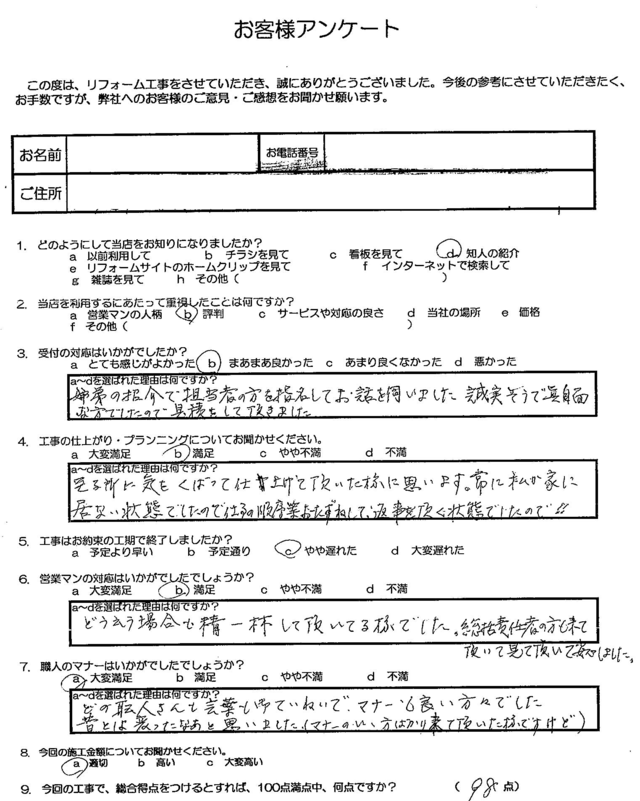 お客様アンケート
この度は、リフォーム工事をさせていただき、誠にありがとうございました。今後の参考にさせていただきたく、
お手数ですが、弊社へのお客様のご意見・ご感想をお聞かせ願います。
お名前
お電話番号
ご住所
1. どのようにして当店をお知りになりましたか?
a 以前利用して b チラシを見て c 看板を見て d 知人の紹介
e リフォームサイトのホームクリップを見て f インターネットで検索して
g 雑誌を見て h その他 ( )
2. 当店を利用するにあたって重視したことは何ですか?
a 営業マンの人柄 b 評判 c サービスや対応の良さ d 当社の場所 e 価格
f その他 ( )
3. 受付の対応はいかがでしたか?
a とても感じがよかった b まあまあ良かった c あまり良くなかった d 悪かった
a~dを選ばれた理由は何ですか?
姉弟の紹介で担当者の方を指名してお話を伺いました 誠実そうで真自面
な方でしたので見積をして頂きました
4. 工事の仕上がり・プランニングについてお聞かせください。
a 大変満足 b 満足 c やや不満 d 不満
a~dを選ばれた理由は何ですか?
見る所に気をくばって仕上げて頂いた様に思います。常に私が家に
居ない状態でしたので仕事の順序 おたずねして、返事を頂く状態でしたので!!
5. 工事はお約束の工期で終了しましたか?
a 予定より早い b 予定通り c やや遅れた d 大変遅れた
6. 営業マンの対応はいかがでしたでしょうか?
a 大変満足 b 満足 c やや不満 d 不満
a~dを選ばれた理由は何ですか?
どう云う場合も精一杯して頂いてる様でした。総括責任者の方も来て
頂いて見て頂いて安心しました。
7. 職人のマナーはいかがでしたでしょうか?
a 大変満足 b 満足 c やや不満 d 不満
a~dを選ばれた理由は何ですか?
どの職人さんも言葉もていねいで、マナーも良い方々でした
昔とは変ったなあと思いました。(マナーのいい方ばかり来て頂いた様ですけど)
8. 今回の施工金額についてお聞かせください。
a 適切 b 高い c 大変高い
9. 今回の工事で、総合得点をつけるとすれば、100点満点中、何点ですか? ( 98 点)